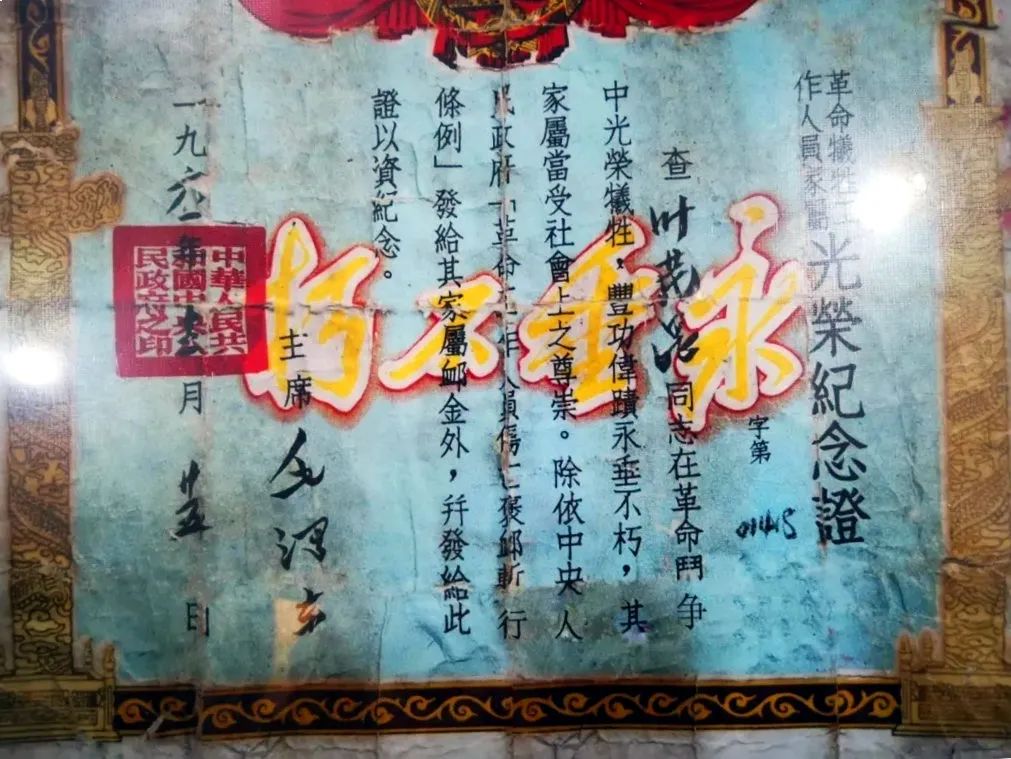 革命犧牲工
作人員家屬
光榮紀念證
字第
查叶茂
同志在革命鬥争
中光榮犧牲，豐功偉蹟永垂不朽，其
家屬當受社會上之尊崇。除依中央人
民政府「革命工作人員傷亡褒卹暫行
條例」發給其家屬卹金外，并發給此
證以資紀念。
主席毛澤东
一九六一年
月廿五日
永垂不朽
中華人民共
和國中央人
民政府之印